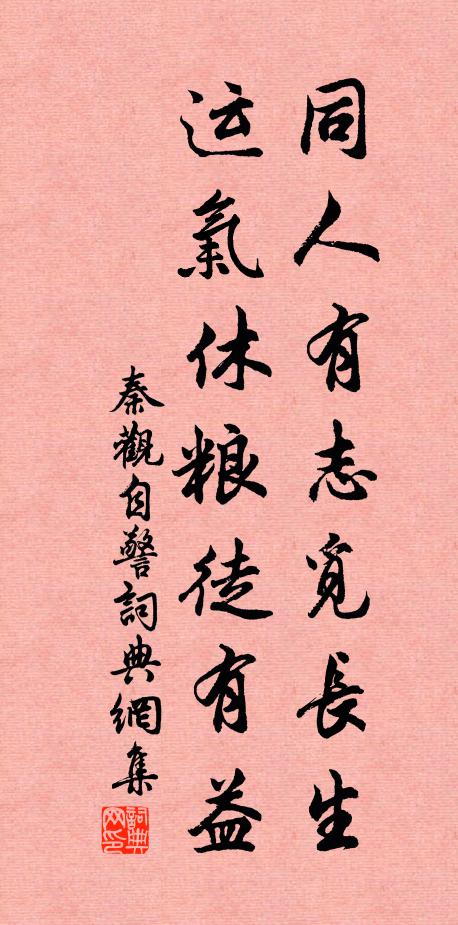 同人有志觅長生
运氣休粮徒有益
秦觀自警詞典網集
詞典网印